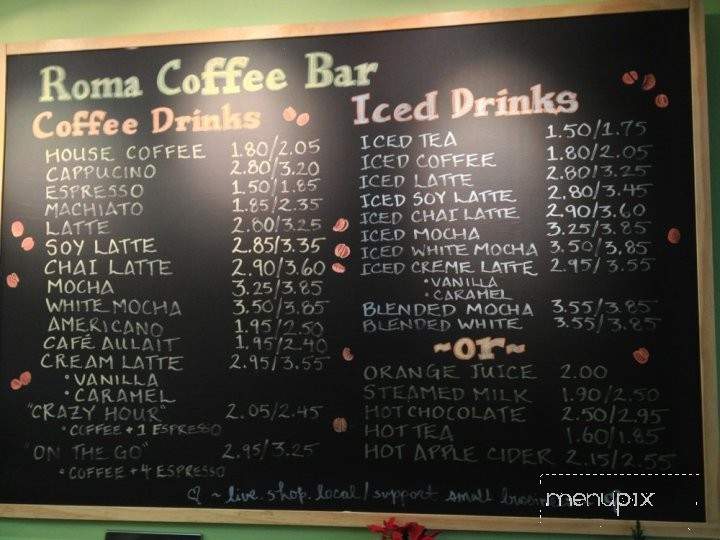 Roma Coffee Bar
Coffee Drinks
HOUSE COFFEE 1.80/2.05
CAPPUCINO 2.80/3.20
ESPRESSO 1.50/1.85
MACHIATO 1.85/2.35
LATTE 2.80/3.25
SOY LATTE 2.85/3.35
CHAI LATTE 2.90/3.60
MOCHA 3.25/3.85
WHITE MOCHA 3.50/3.85
AMERICANO 1.95/2.50
CAFÉ AULAIT 1.95/2.40
CREAM LATTE 2.95/3.55
• VANILLA
• CARAMEL
"CRAZY HOUR" 2.05/2.45
• COFFEE + 1 ESPRESSO
"ON THE GO" 2.95/3.25
• COFFEE + 4 ESPRESSO
Iced Drinks
ICED TEA 1.50/1.75
ICED COFFEE 1.80/2.05
ICED LATTE 2.80/3.25
ICED SOY LATTE 2.80/3.45
ICED CHAI LATTE 2.90/3.60
ICED MOCHA 3.25/3.85
ICED WHITE MOCHA 3.50/3.85
ICED CREME LATTE 2.95/3.55
• VANILLA
• CARAMEL
BLENDED MOCHA 3.55/3.85
BLENDED WHITE 3.55/3.85
~or~
ORANGE JUICE 2.00
STEAMED MILK 1.90/2.50
HOT CHOCOLATE 2.50/2.95
HOT TEA 1.60/1.85
HOT APPLE CIDER 2.15/2.55
~ live.shop.local/support small
menupix